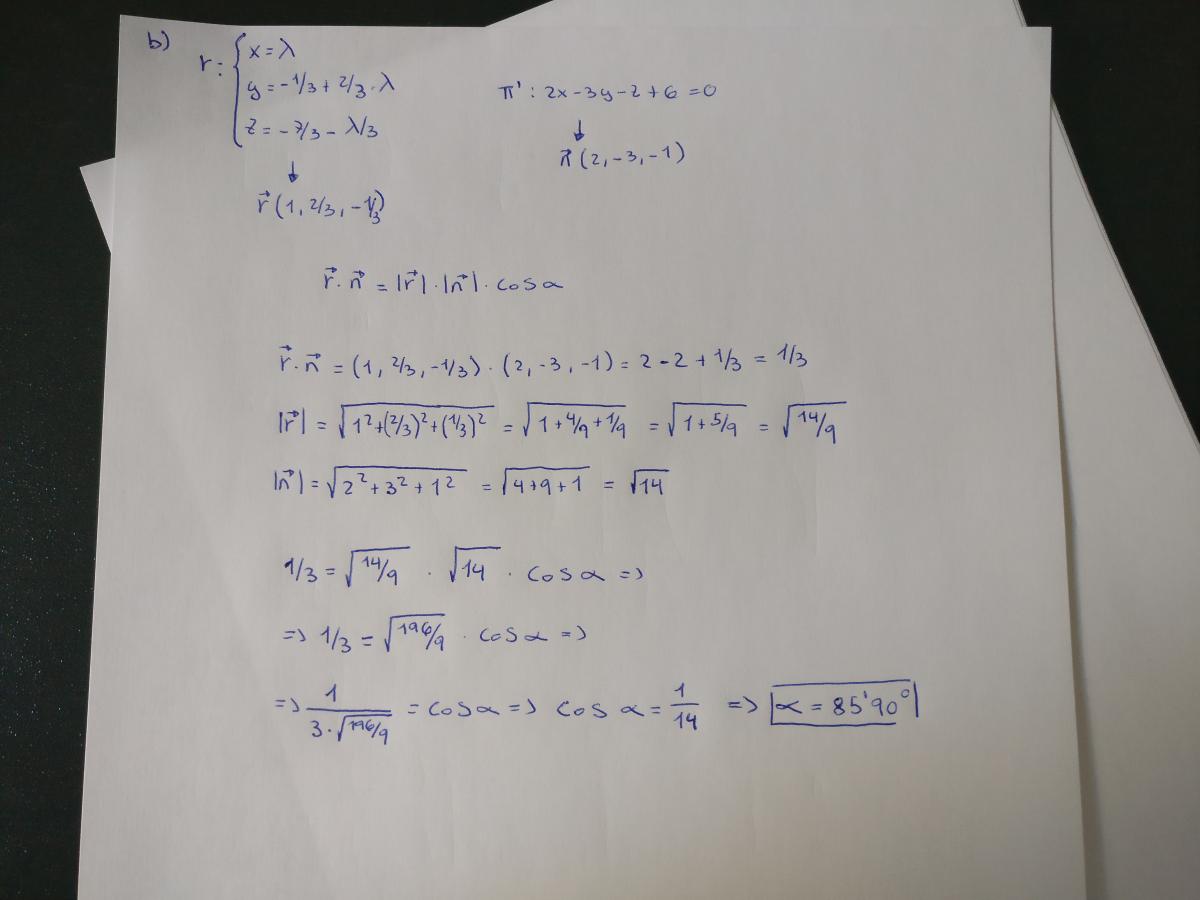 b)
r: { x = λ
y = -1/3 + 2/3 · λ
z = -7/3 - λ/3
π' : 2x - 3y - z + 6 = 0
↓
n⃗ (2, -3, -1)
↓
r⃗ (1, 2/3, -1/3)
r⃗ · n⃗ = |r⃗| · |n⃗| · cos α
r⃗ · n⃗ = (1, 2/3, -1/3) · (2, -3, -1) = 2 - 2 + 1/3 = 1/3
|r⃗| = √(1² + (2/3)² + (1/3)²) = √(1 + 4/9 + 1/9) = √(1 + 5/9) = √(14/9)
|n⃗| = √(2² + 3² + 1²) = √(4 + 9 + 1) = √14
1/3 = √(14/9) · √14 · cos α =>
=> 1/3 = √(196/9) · cos α =>
=> 1/(3 · √(196/9)) = cos α => cos α = 1/14 => α = 85'90°